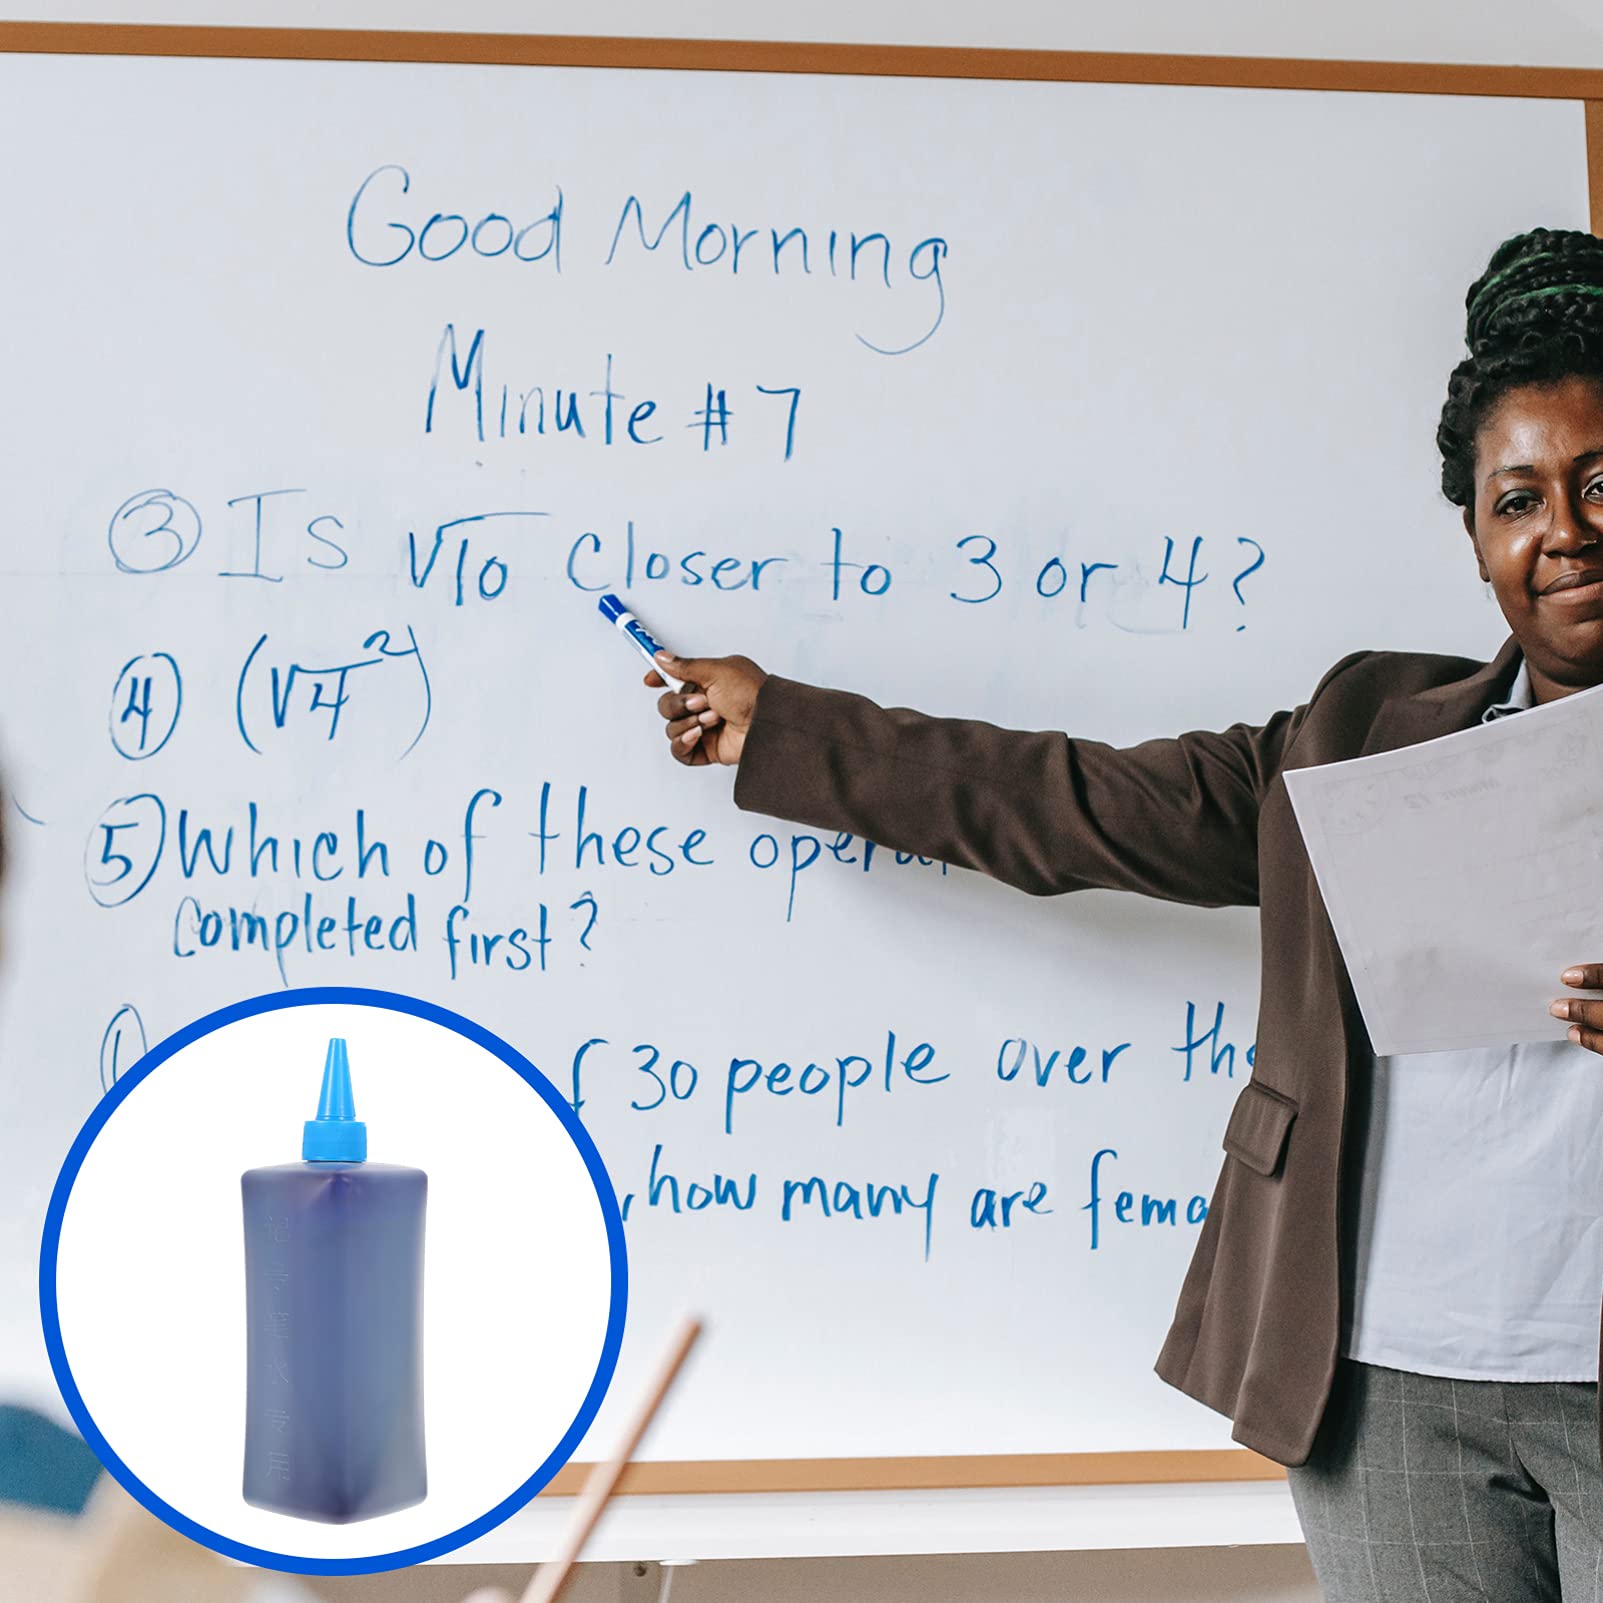 Good Morning
Minute #7
③ Is √10 closer to 3 or 4?
④ (√4²)
⑤ Which of these opera
completed first?
① f 30 people over the
, how many are fema
记号墨水专用